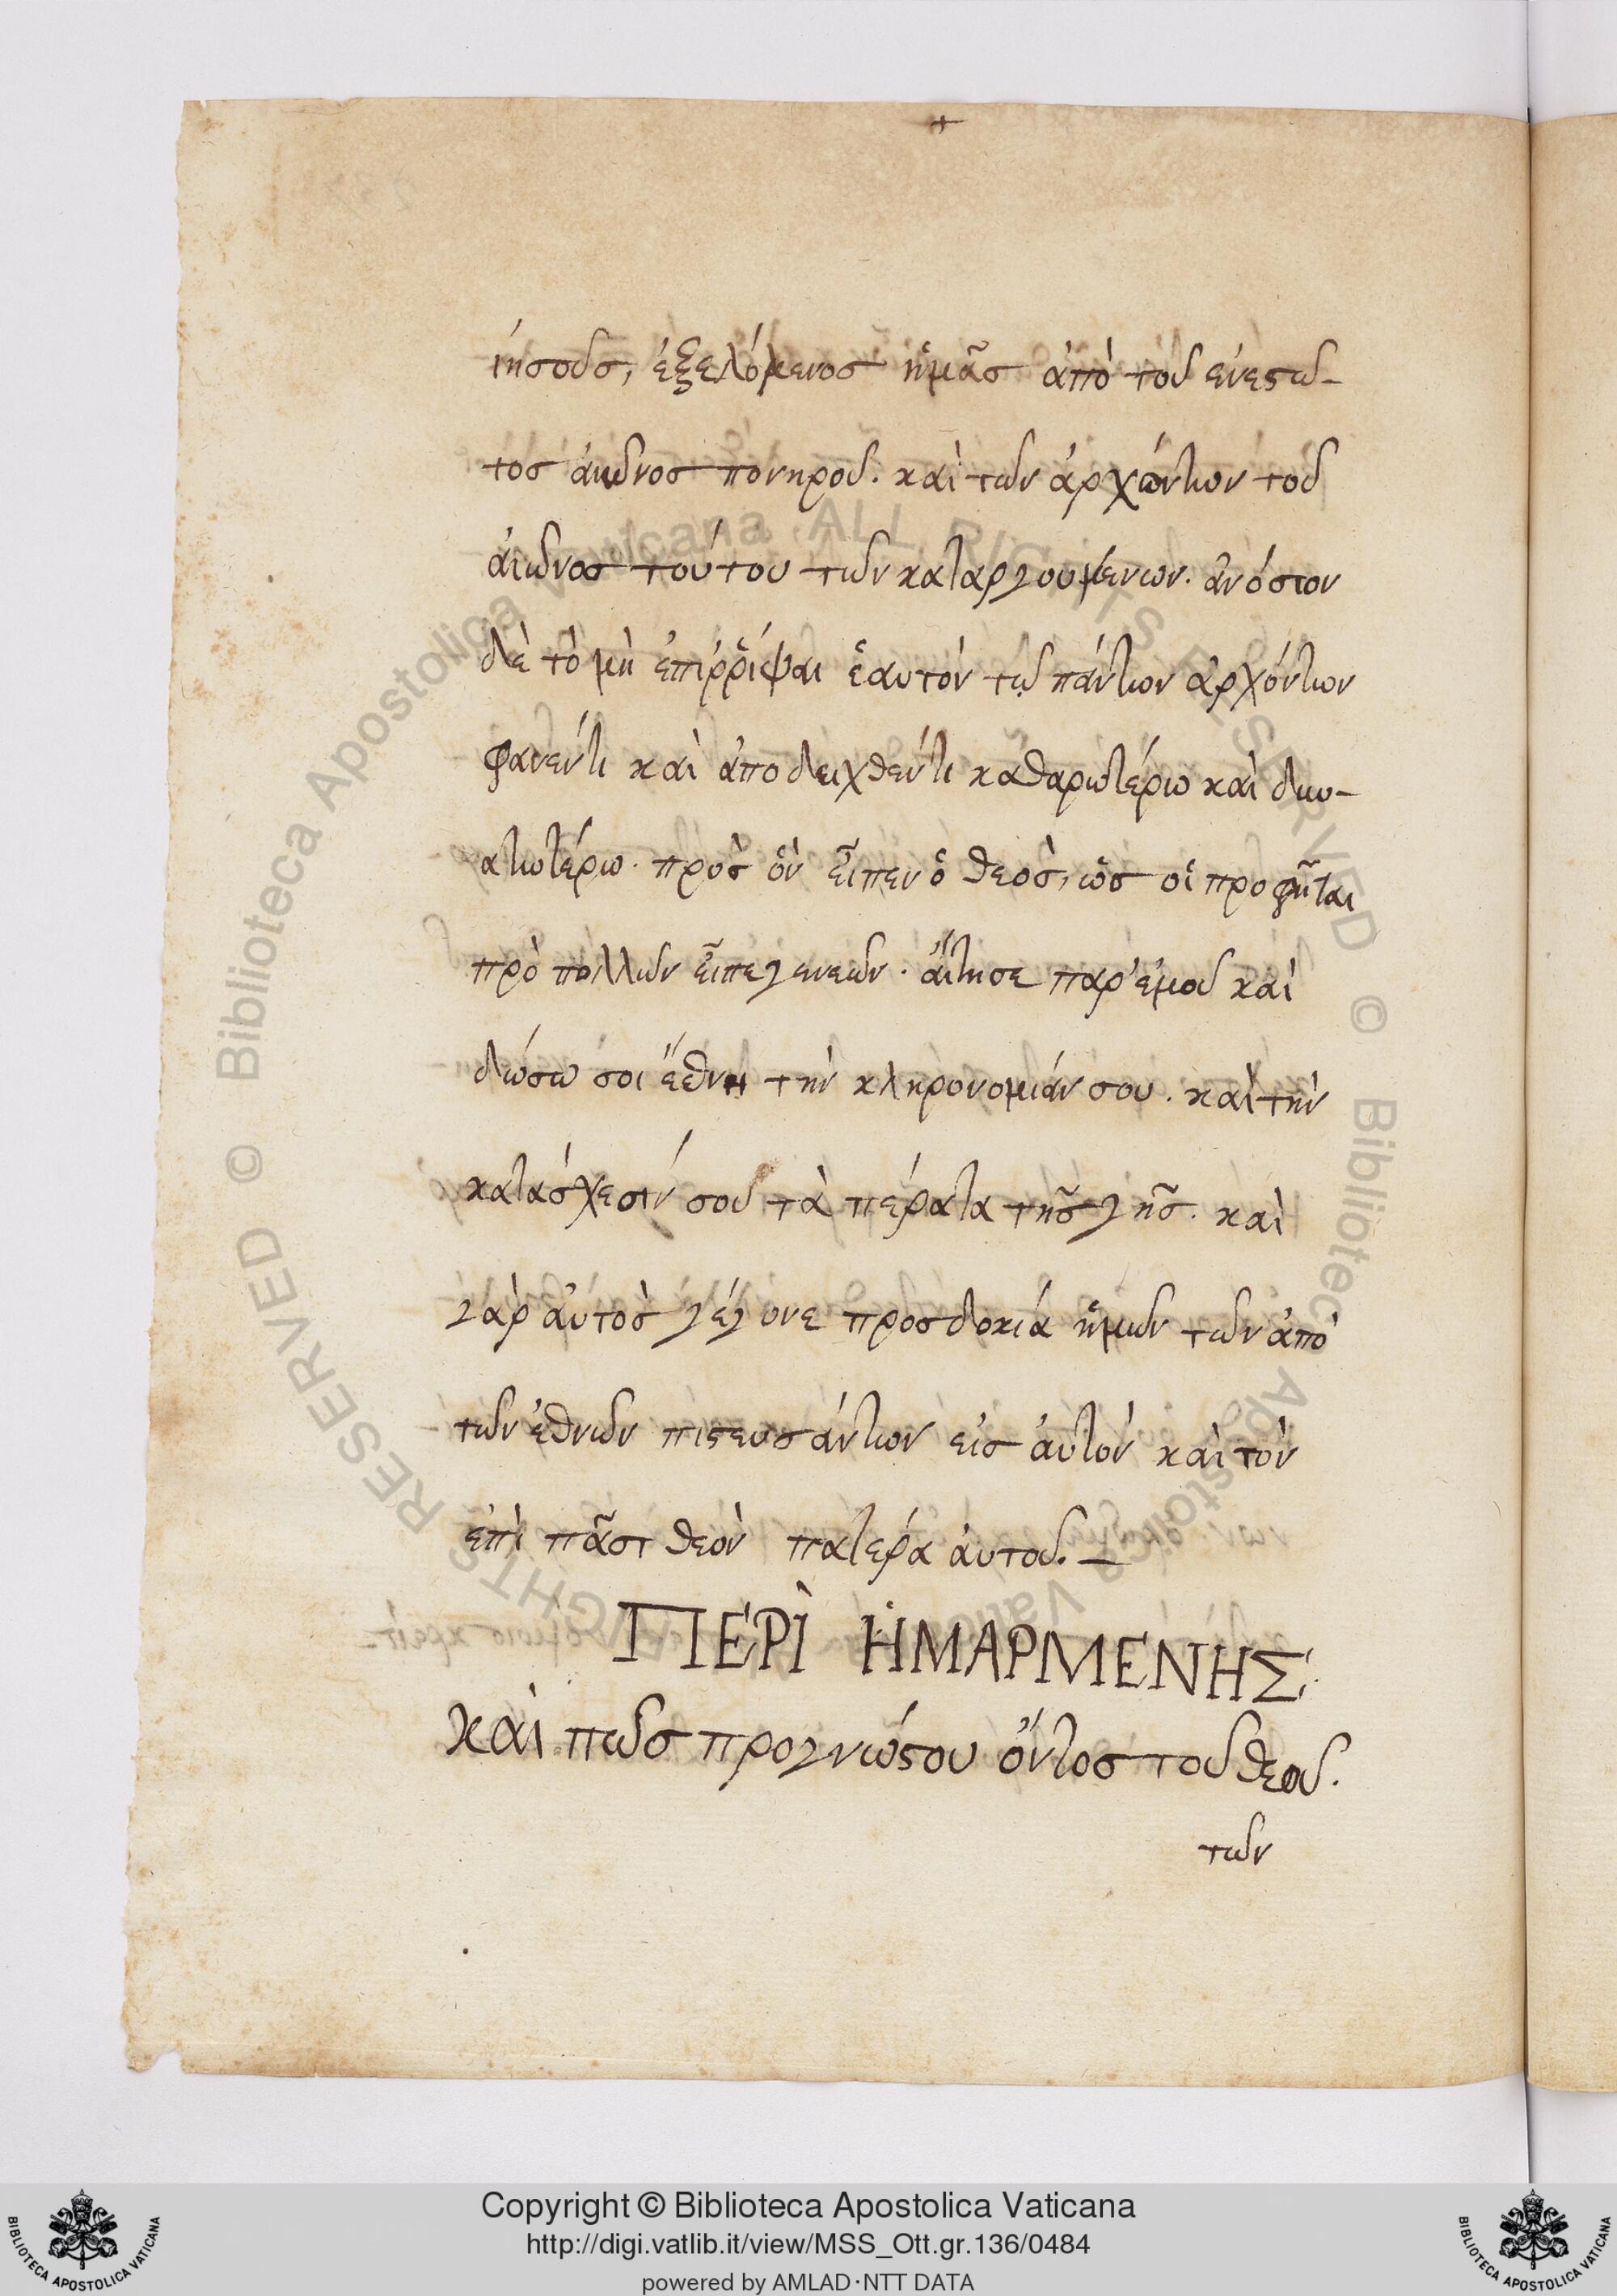 +
ἰησοῦς, ἐξελόμενος ἡμᾶς ἀπὸ τοῦ ἐνεστῶ-
τος ἀιῶνος πονηροῦ. καὶ τῶν ἀρχόντων τοῦ
ἀιῶνος τούτου τῶν καταργουμένων. ἀνόσιον
δὲ τὸ μὴ ἐπιῤῥίψαι ἑαυτὸν τῷ πάντων ἀρχόντων
φανέντι καὶ ἀποδειχθέντι καθαρωτέρω καὶ δυν-
ατωτέρω. πρὸς ὃν εἶπεν ὁ θεὸς, ὡς οἱ προφῆται
πρὸ πολλῶν εἶπε γενεῶν. αἴτησε παρ' ἐμοῦ καὶ
δώσω σοι ἔθνη τὴν κληρονομιάν σου. καὶ τὴν
κατάσχεσίν σου τὰ πέρατα τῆς γῆς. καὶ
γὰρ ἀυτὸς γέγονε προσδοκία ἡμῶν τῶν ἀπὸ
τῶν ἐθνῶν πιστευσάντων εἰς ἀυτὸν καὶ τὸν
ἐπὶ πᾶσι θεὸν πατέρα ἀυτοῦ. —
ΠΕΡῚ ἩΜΑΡΜΕΝΗΣ.
καὶ πῶς προγνώστου ὄντος τοῦ θεοῦ.
τῶν
Copyright © Biblioteca Apostolica Vaticana
http://digi.vatlib.it/view/MSS_Ott.gr.136/0484
powered by AMLAD·NTT DATA
BIBLIOTECA APOSTOLICA VATICANA
BIBLIOTECA APOSTOLICA VATICANA
© Biblioteca Apostolica Vaticana ALL RIGHTS RESERVED © Biblioteca Apostolica Vaticana ALL RIGHTS RESERVED